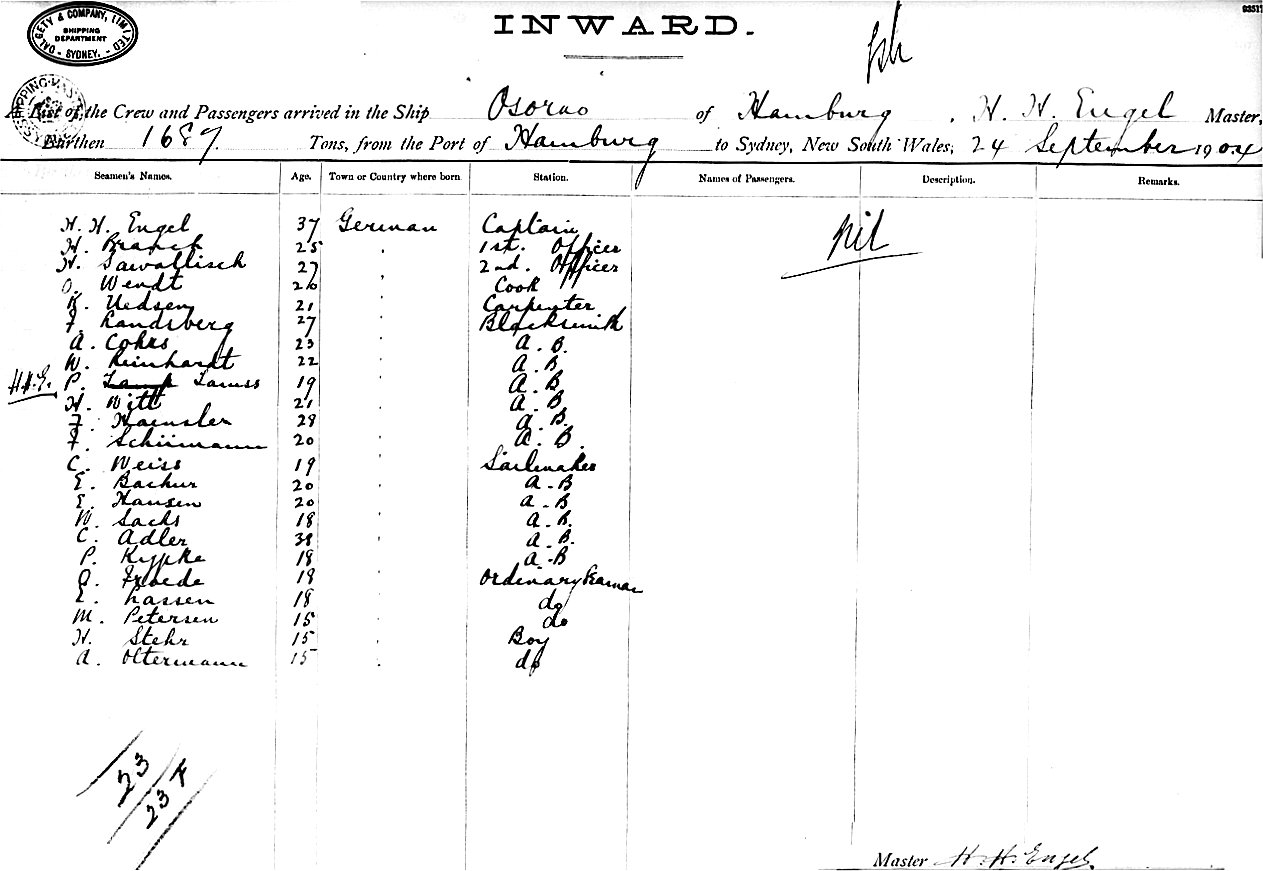 DALGETY & COMPANY, LIMITED
SHIPPING
DEPARTMENT
- SYDNEY. -
INWARD.
A List of the Crew and Passengers arrived in the Ship Osorno of Hamburg, H. H. Engel Master,
Burthen 1687. Tons, from the Port of Hamburg to Sydney, New South Wales, 24 September 1904
Seamen's Names. Age. Town or Country where born Station. Names of Passengers. Description. Remarks.
H. H. Engel 37 German Captain nil
H. Branch 25 " 1st. Officer
H. Sawallisch 27 " 2nd. Officer
O. Wendt 26 " Cook
K. Uedsen 21 " Carpenter
F. Landsberg 27 " Blacksmith
A. Cohrs 23 " A. B.
W. Reinhardt 22 " A. B.
H.H.E. P. Tamss 19 " A. B
H. Witt 21 " A. B
F. Haensler 28 " A. B.
F. Schürmann 20 " A. B.
C. Weiss 19 " Sailmaker
E. Bachur 20 " A. B
E. Hansen 20 " A. B
W. Sachs 18 " A. B.
C. Adler 38 " A. B.
P. Kypke 18 " A. B
O. Froede 18 " Ordinary Seaman
E. Lassen 18 " do
M. Petersen 15 " do
H. Stehr 15 " Boy
A. Oltermann 15 " do
23
23 F
Master H. H. Engel.